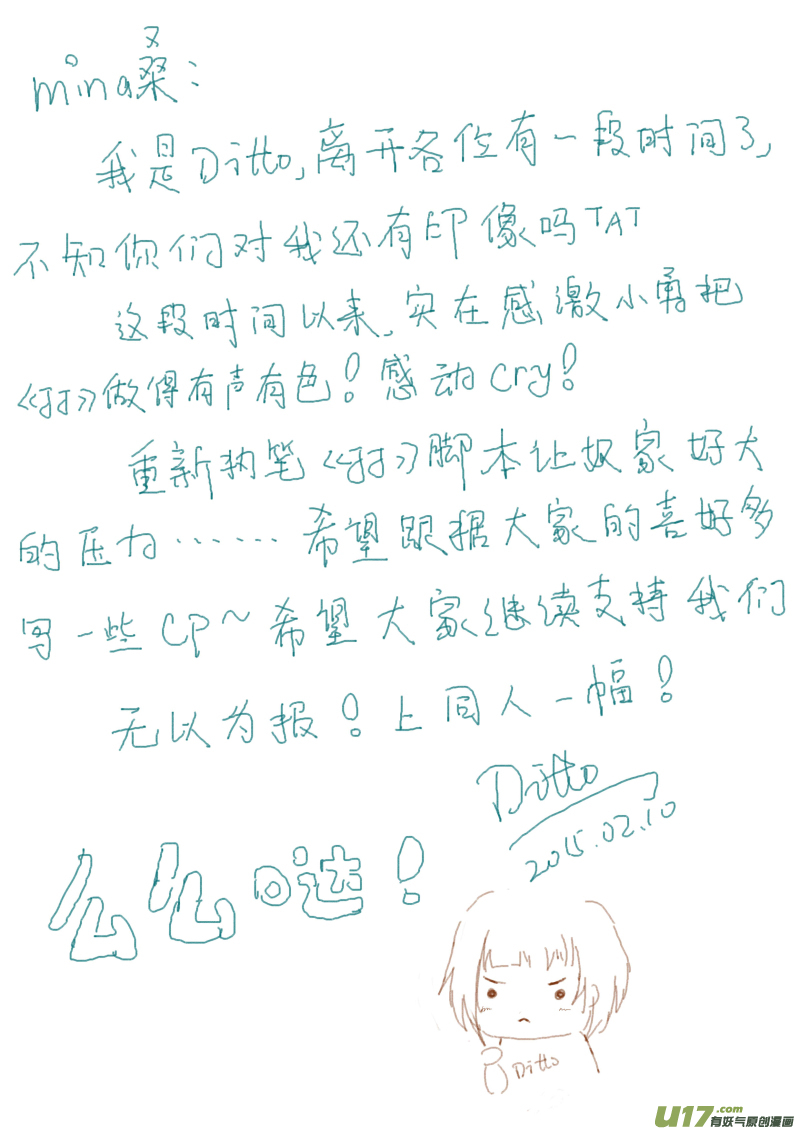 mina桑:
我是Ditto,离开各位有一段时间了,
不知你们对我还有印像吗TAT
这段时间以来,实在感激小勇把
《JJ》做得有声有色!感动cry!
重新执笔《JJ》脚本让奴家好大
的压力……希望跟据大家的喜好多
写一些CP~希望大家继续支持我们
无以为报!上同人一幅!
Ditto
2015.02.10
么么哒!
Ditto
U17.com
有妖气原创漫画